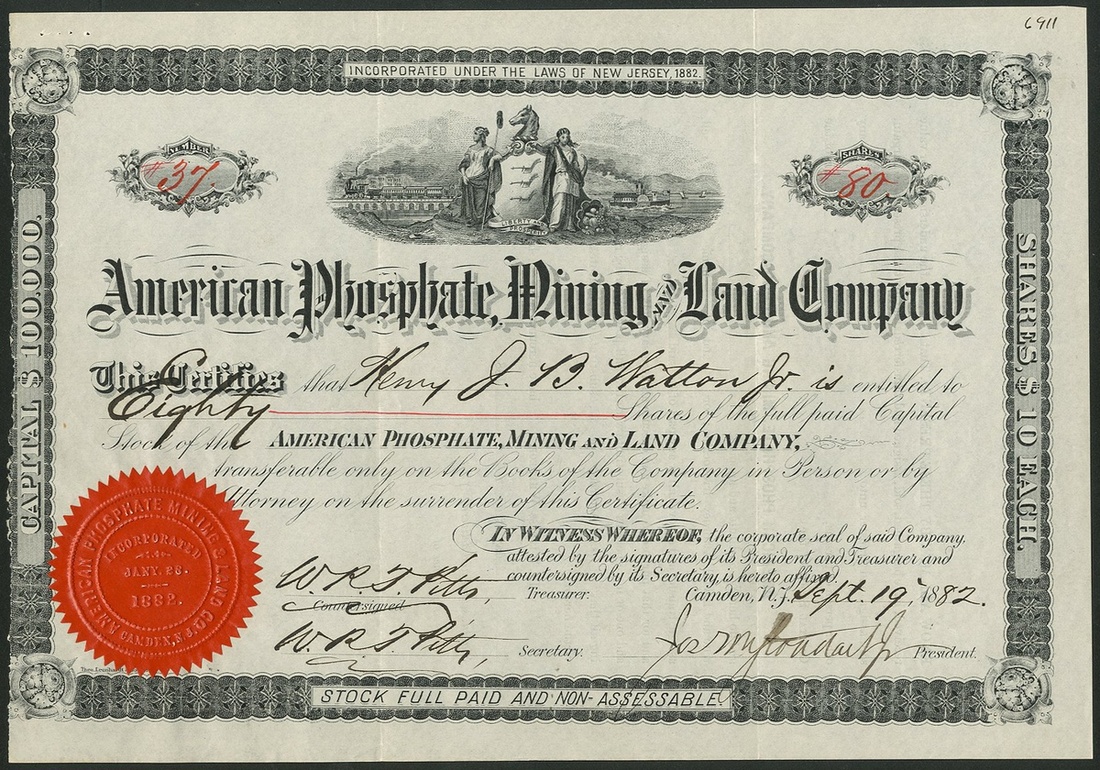 6911
INCORPORATED UNDER THE LAWS OF NEW JERSEY, 1882.
NUMBER
#37.
SHARES
#80.
LIBERTY AND
PROSPERITY
CAPITAL $1000000.
SHARES, $10 EACH.
American Phosphate, Mining AND Land Company
This Certifies that Henry J. B. Watton Jr. is entitled to
Eighty Shares of the full paid Capital
Stock of the AMERICAN PHOSPHATE, MINING AND LAND COMPANY,
transferable only on the Books of the Company in Person or by
Attorney on the surrender of this Certificate.
IN WITNESS WHEREOF, the corporate seal of said Company,
attested by the signatures of its President and Treasurer and
countersigned by its Secretary, is hereto affixed.
W. R. T. Pitts, Treasurer. Camden, N.J. Sept. 19, 1882.
Countersigned
W. R. T. Pitts, Secretary. President.
AMERICAN PHOSPHATE MINING & LAND CO
CAMDEN, N.J.
INCORPORATED
JANY. 28.
1882.
STOCK FULL PAID AND NON-ASSESSABLE.